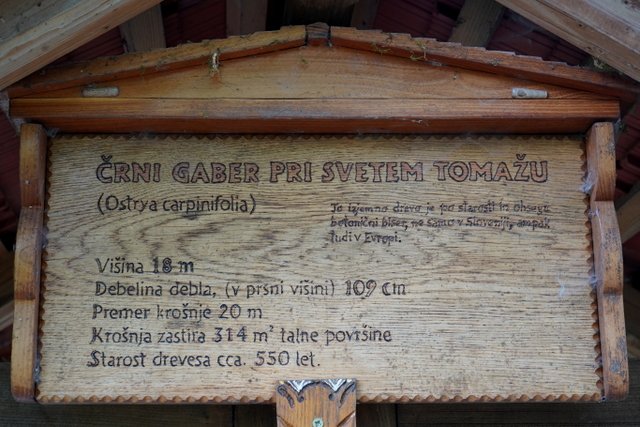 ČRNI GABER PRI SVETEM TOMAŽU
(Ostrya carpinifolia)
To izjemno drevo je po starosti in obsegu
botanični biser, ne samo v Sloveniji, ampak
tudi v Evropi.
Višina 18 m
Debelina debla, (v prsni višini) 109 cm
Premer krošnje 20 m
Krošnja zastira 314 m² talne površine
Starost drevesa cca. 550 let.